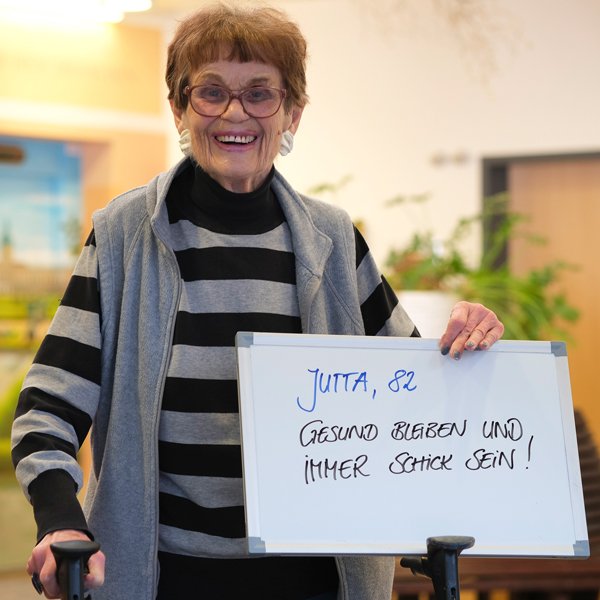 JUTTA, 82
GESUND BLEIBEN UND
IMMER SCHICK SEIN!